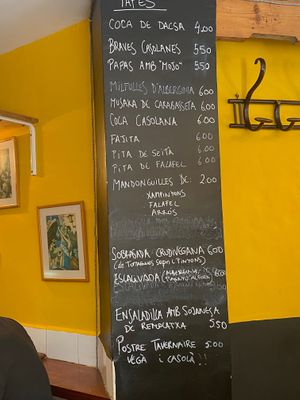 TAPES
COCA DE DACSA 4.00
BRAVES CASOLANES 5.50
PAPAS AMB "MOJO" 5.50
MILFULLES D'ALBERGINIA 6.00
MUSAKA DE CARABASSETA 6.00
COCA CASOLANA 6.00
FAJITA 6.00
PITA DE SEITÀ 6.00
PITA DE FALAFEL 6.00
MANDONGUILLES DE: 2.00
XAMPINYONS
FALAFEL
ARRÒS
SOBRASADA CRUDIVEGANA 6.00
(de TOMAQUES SEQUES I PINYONS)
ESCALIVADA
ENSALADILLA AMB SODANESA
DE REMOLATXA 5.50
POSTRE TAVERNAIRE 5.00
VEGÀ I CASOLÀ!!